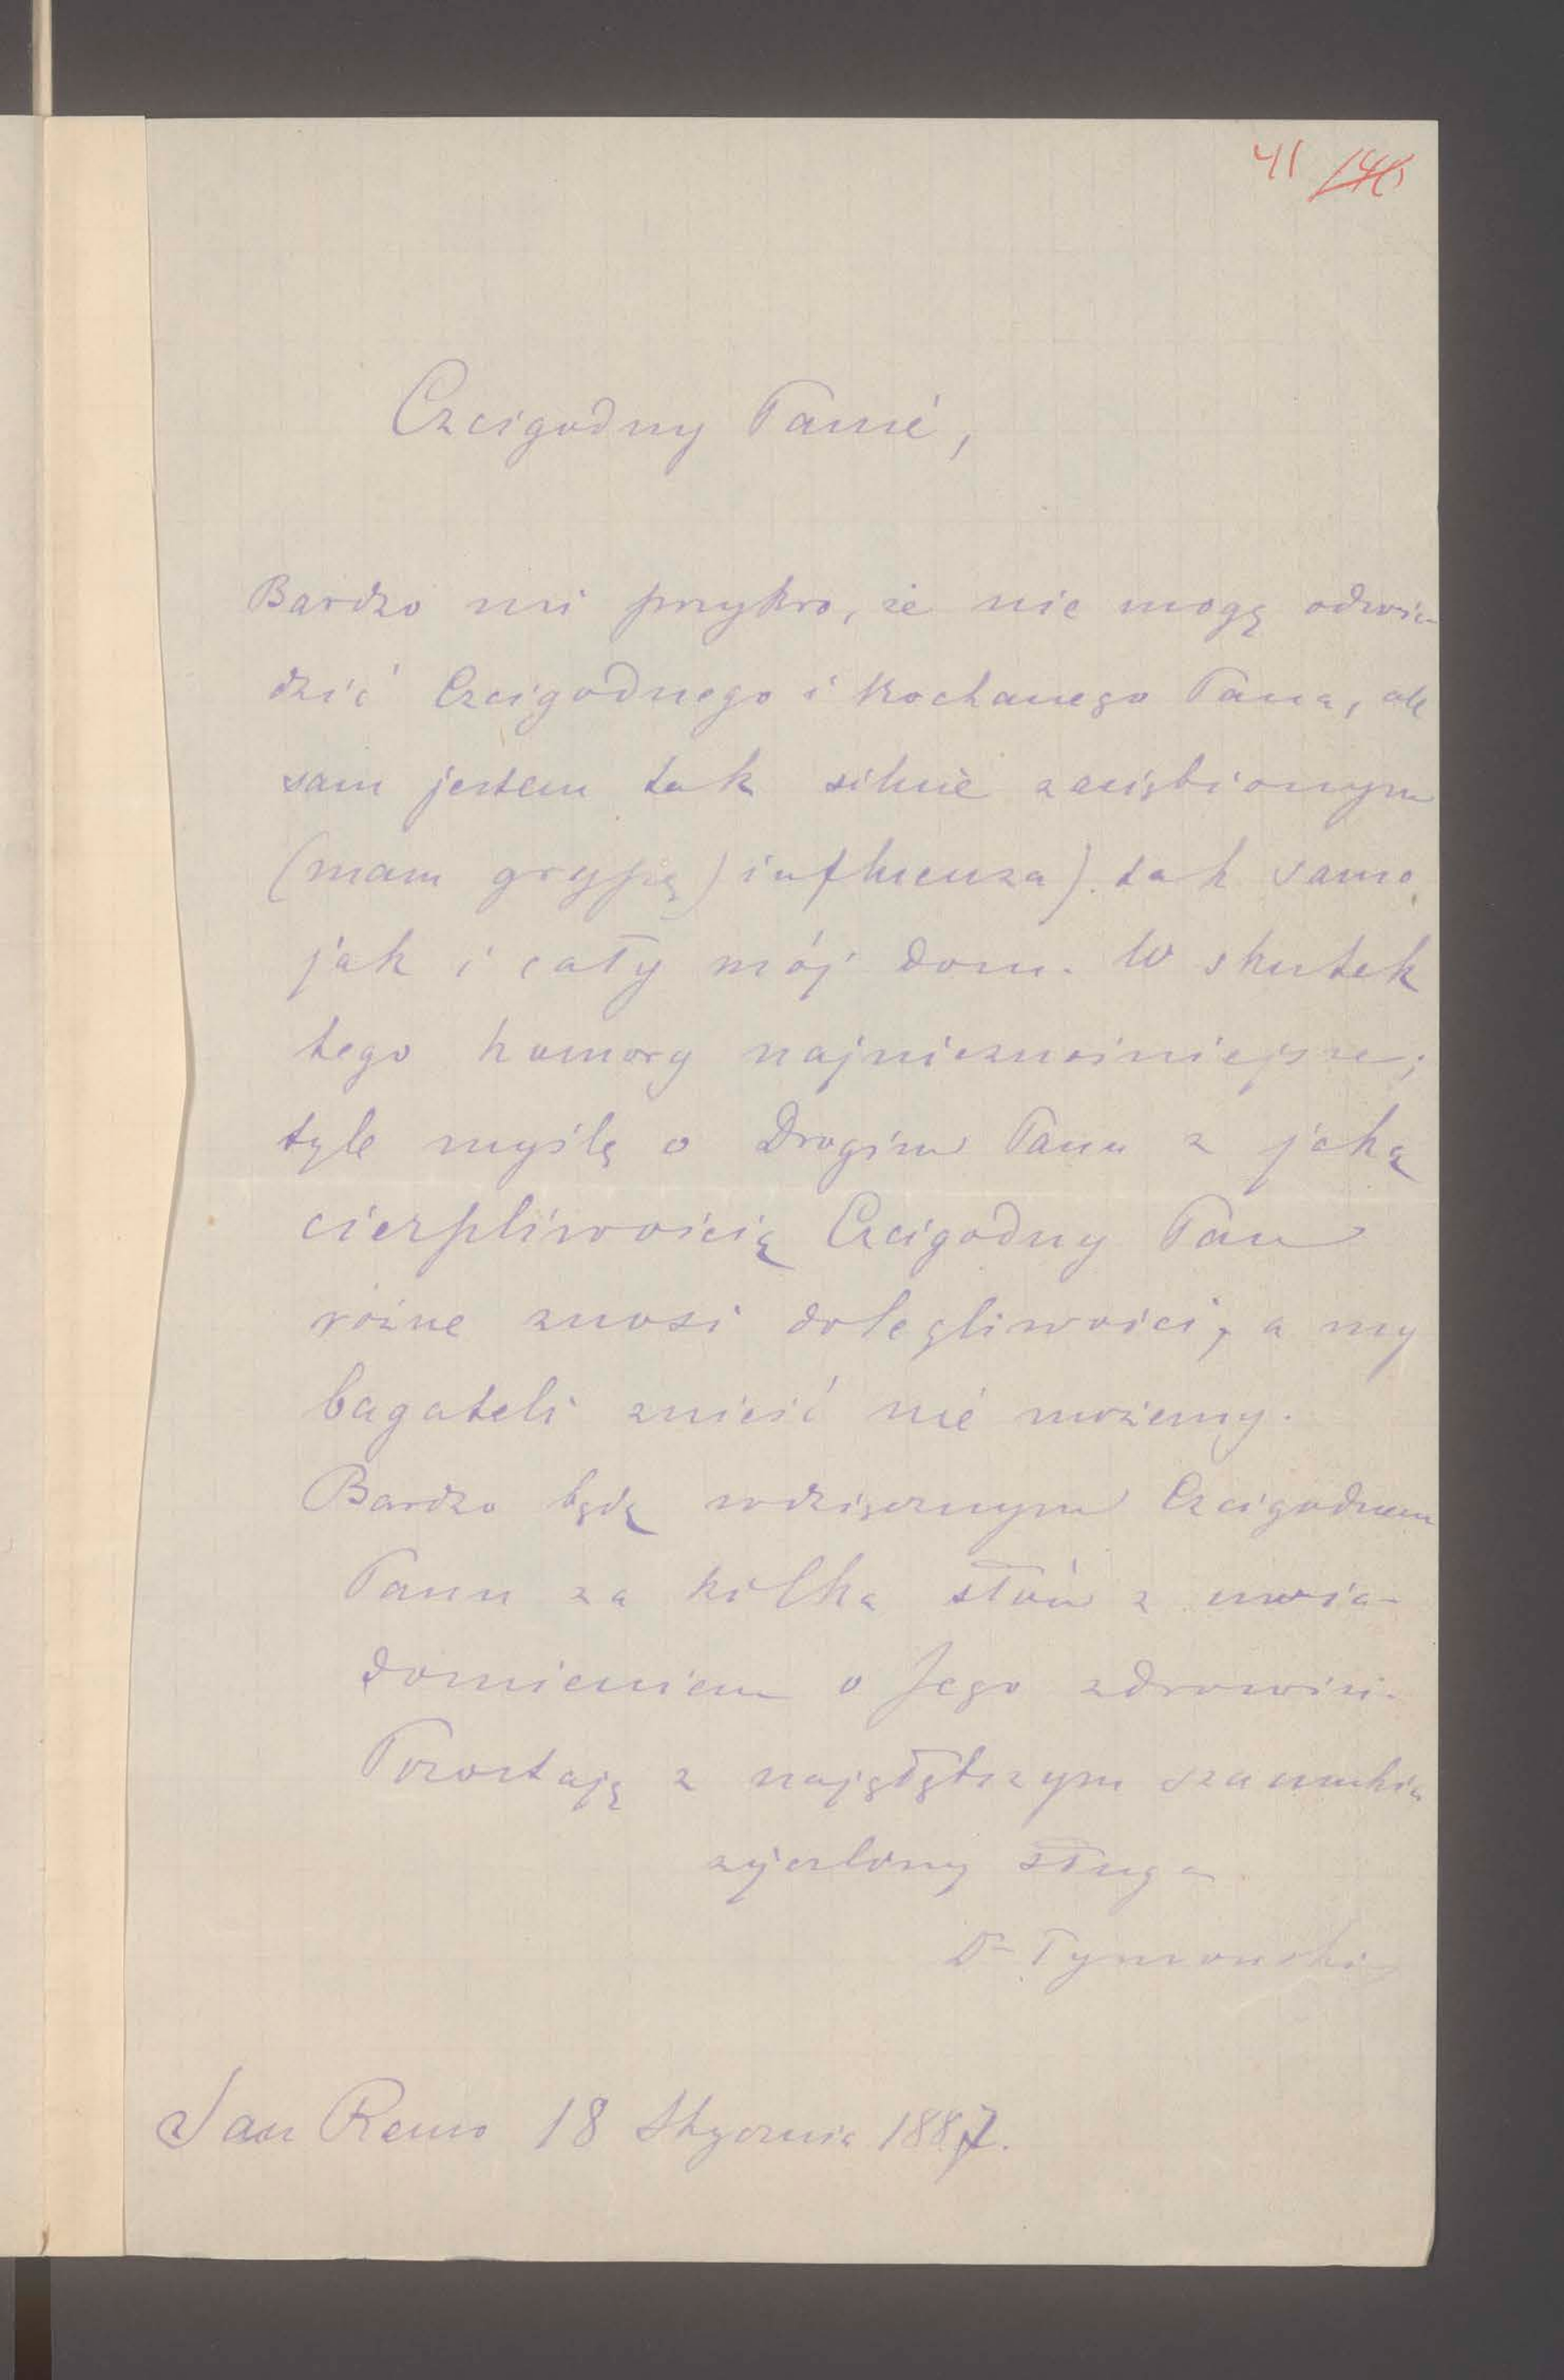 41 146
Czcigodny Panie,
Bardzo mi przykro, że nie mogę odwie-
dzić Czcigodnego i Kochanego Pana, ale
sam jestem tak silnie zaziębionym
(mam grypię) influenza) tak samo
jak i cały mój dom. W skutek
tego humory najnieznośniejsze;
tyle myślę o Drogim Panu z jaką
cierpliwością Czcigodny Pan
różne znosi dolegliwości, a my
bagateli znieść nie możemy.
Bardzo będę wdzięcznym Czcigodnemu
Panu za kilka słów z uwia-
domieniem o Jego zdrowiu.
Pozostaję z najgłębszym szacunkiem
życzliwy sługa
Dr Tymowski
San Remo 18 Stycznia 1887.